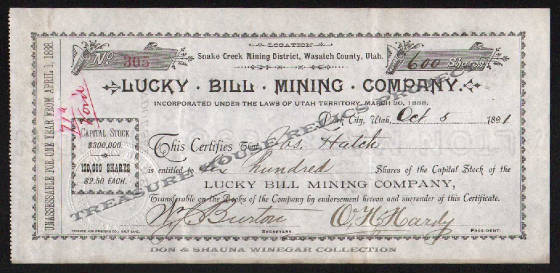 LOCATION
Snake Creek Mining District, Wasatch County, Utah.
No. 305
600 Shares
LUCKY BILL MINING COMPANY.
INCORPORATED UNDER THE LAWS OF UTAH TERRITORY, MARCH 20, 1888.
City, Utah, Oct 5 1891
UNASSESSABLE FOR ONE YEAR FROM APRIL 1, 1888.
CAPITAL STOCK
$300,000.
120,000 SHARES
$2.50 EACH.
This Certifies that Jos. Hatch
is entitled to Six Hundred Shares of the Capital Stock of the
LUCKY BILL MINING COMPANY,
Transferable on the Books of the Company by endorsement hereon and surrender of this Certificate.
Burton
O. H. Hardy
SECRETARY.
PRESIDENT.
TREASURE HOUSE RELICS PROJECT
DON & SHAUNA WINEGAR COLLECTION